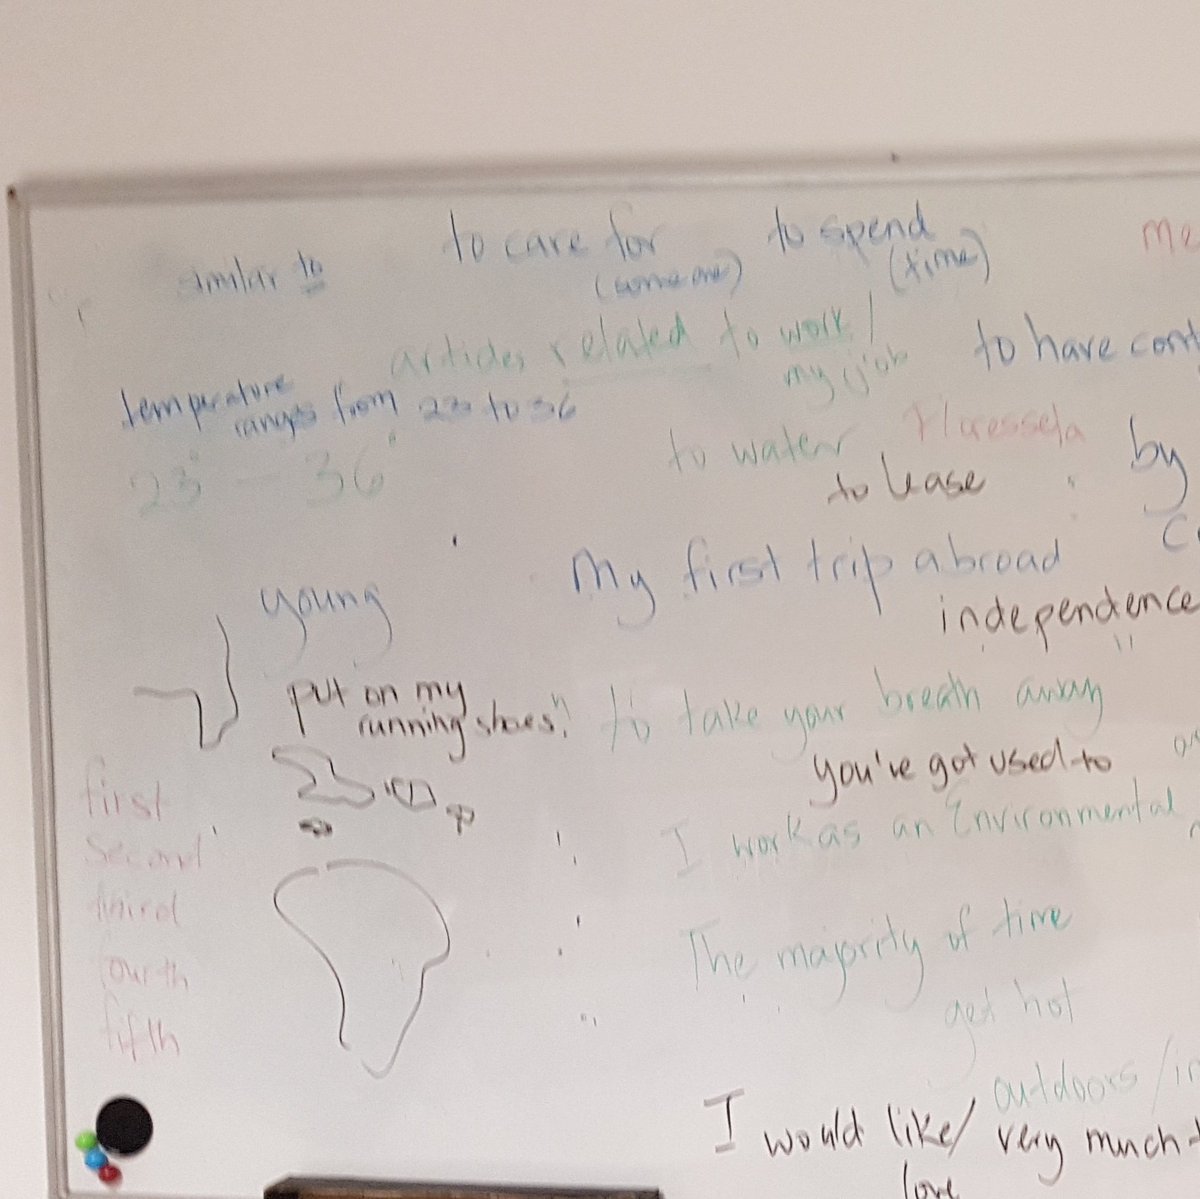 similar to
to care for
(someone)
to spend
(time)
me
articles related to work/
my job
to have cont
temperature
ranges from 23 to 36
23° - 36°
to water
to lease
by
My first trip abroad
independence
young
put on my
running shoes."
to take your breath away
you've got used to
first
second
third
fourth
fifth
I work as an Environmental
The majority of time
get hot
outdoors/in
I would like/ very much
love